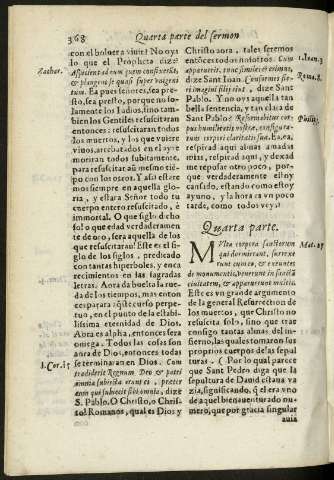 368
Quarta parte del sermon
con el boluera viuir? No oys
lo que el Propheta dize?
Zachar.
Aspicient ad eum quem confixerũt,
& plangent se quasi super vnigeni
tum. Ea pues señores, sea pre-
sto, sea presto, porque no so-
lamente los Iudios, sino tam-
bien los Gentiles resuscitaran
entonces: resuscitaran todos
los muertos, y los que quiere
viuos, arrebatados en el ayre
moriran todos subitamente,
para resuscitar aũ mesmo tiẽ-
po con los otros. Y assi estare
mos siempre en aquella glo-
ria, y estara Señor todo tu
cuerpo entero resuscitado, è
immortal. O que siglo dicho
so! o que edad verdaderamen
te de oro, sera aquella de los
que resuscitaran! Este es el si-
glo de los siglos, predicado
con tantas hiperboles, y enca
recimientos en las sagradas
letras. Aora da buelta la rue-
da de los tiempos, mas enton
ces parara aquesta rueda perpetuo
, en el punto de la establi-
lissima eternidad de Dios.
Abra es alpha, entonces sera
omega. Todas las cosas son
aora de Dios, entonces todas
se terminaran en Dios. Cum
1. Cor. 15
tradiderit Regnum Deo & patri
omnia subiecta erunt ei, præter
eum qui subiecit sibi omnia, dize
S. Pablo. O Christo, o Chris-
to! Romanos, qual es Dios y
Christo aora, tales seremos
entonces todos nosotros. Cum
1. Ioan. 3
apparuerit, tunc similes ei erimus,
dize San Ioan. Conformes fie-
Roma. 8.
ri imagini filij eius, dize San
Pablo. Y no oys aquella tan
bella sentencia, y tan clara de
San Pablo? Reformabit cor-
Philip. 3
pus humilitatis nostræ, configura-
tum corpori claritatis suæ. Ea, ea,
respirad aqui almas amadas
mias, respirad aqui, y dexad
me reposar otro poco, por-
que verdaderamente estoy
cansado, estando como estoy
ayuno, y la hora ya vn poco
tarde, como todos veys.
Quarta parte.
MVlta corpora sanctorum
Mat. 27
qui dormierant, surrexe
runt cuncta, & exeuntes
de monumentis, venerunt in sanctã
ciuitatem, & apparuerunt multis.
Este es vn grande argumento
de la general Resurrection de
los muertos, que Christo no
resuscita solo, sino que trae
consigo tantas almas del in-
fierno, las quales tomaron sus
proprios cuerpos de las sepul
turas. (Por lo qual parece
que San Pedro diga que la
sepultura de Dauid estaua va
zia, significando, q̃ el era vno
de aquel bienauenturado nu-
mero, que por gracia singular
auia